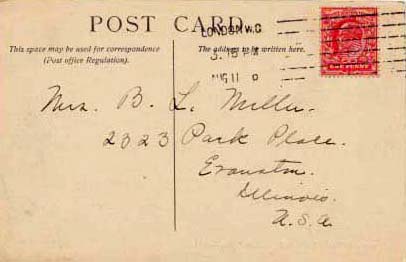 POST CARD.
LONDON W.C
This space may be used for correspondence
(Post office Regulation).
The address to be written here.
3.15 PM
AUG 11
ONE PENNY
Mrs. B. L. Miller.
2323 Park Place.
Evanston.
Illinois.
U.S.A.